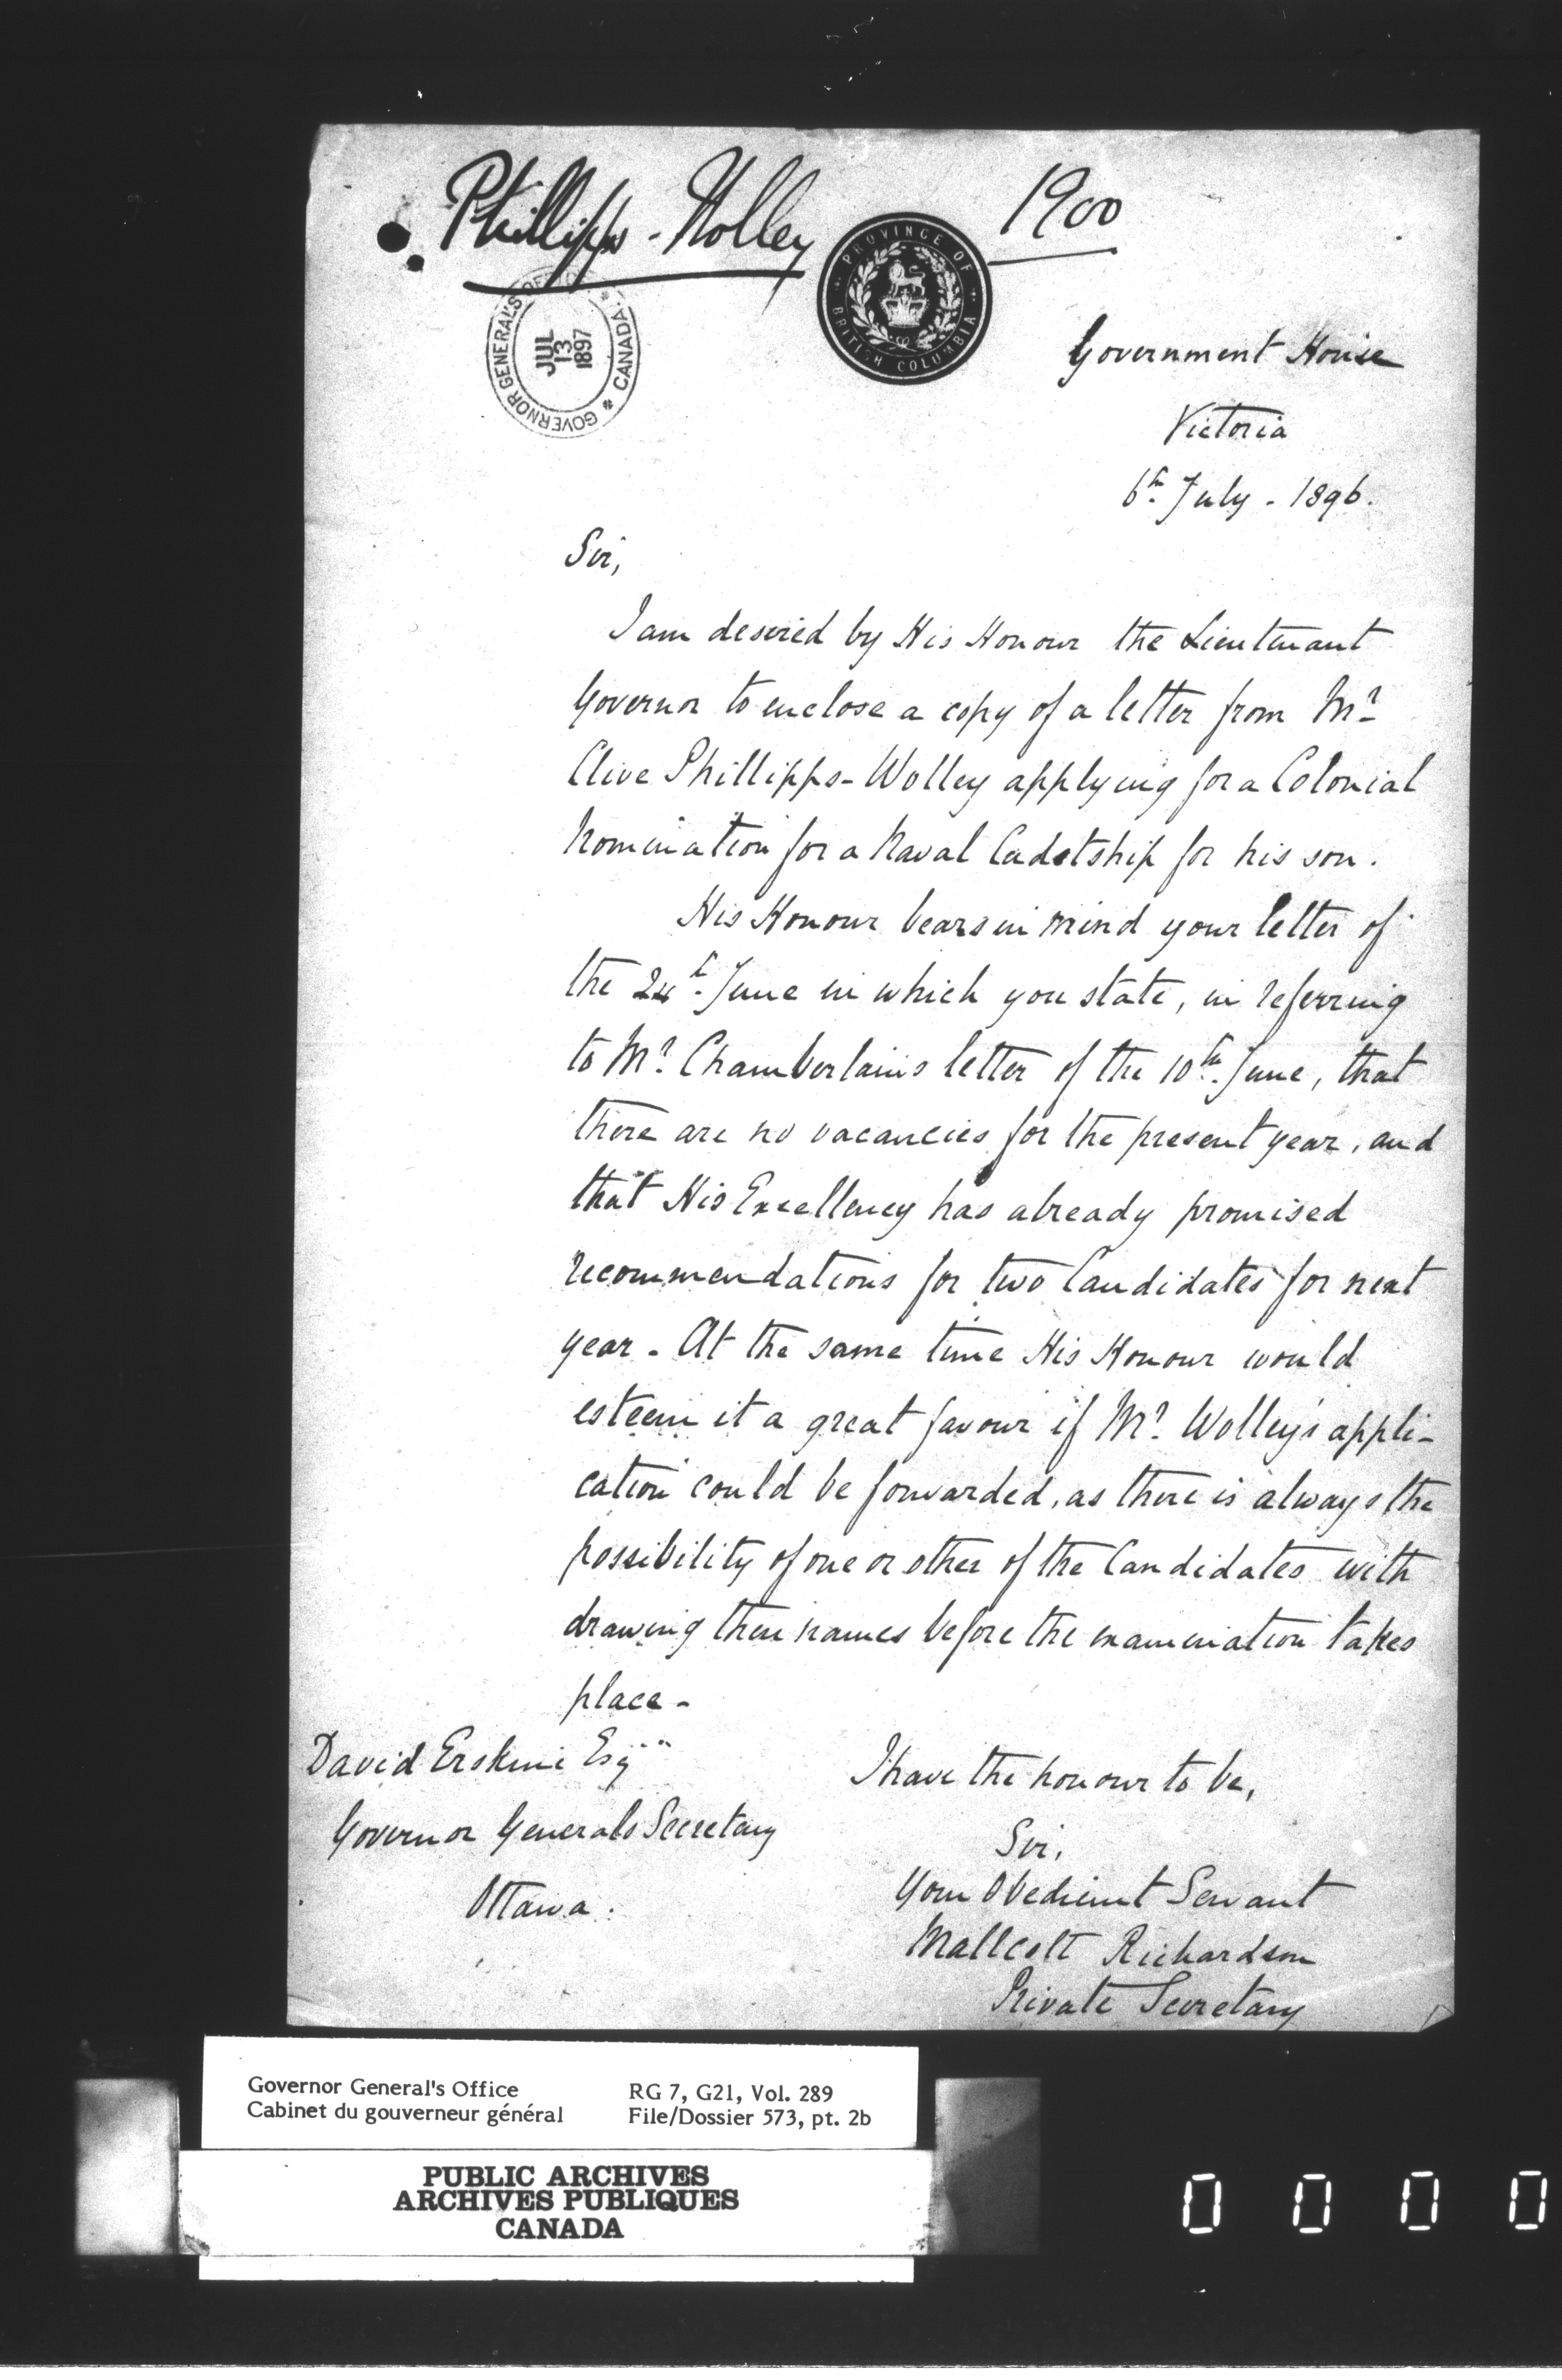 Phillipps-Wolley
1900
PROVINCE OF BRITISH COLUMBIA
GOVERNOR GENERAL'S OFFICE * CANADA. *
JUL
13
1897
Government House
Victoria
6th July - 1896.
Sir,
I am desired by His Honour the Lieutenant
Governor to enclose a copy of a letter from Mr
Clive Phillipps-Wolley applying for a Colonial
Nomination for a Naval Cadetship for his son.
His Honour bears in mind your letter of
the 24th June in which you state, in referring
to Mr Chamberlain's letter of the 10th June, that
there are no vacancies for the present year, and
that His Excellency has already promised
recommendations for two Candidates for next
year - At the same time His Honour would
esteem it a great favour if Mr Wolley's appli-
cation could be forwarded, as there is always the
possibility of one or other of the Candidates with
drawing their names before the examination takes
place -
David Erskine Esqre
Governor Generals Secretary
Ottawa.
I have the honour to be,
Sir,
Your Obedient Servant
Richardson
Private Secretary
Governor General's Office
Cabinet du gouverneur général
RG 7, G21, Vol. 289
File/Dossier 573, pt. 2b
PUBLIC ARCHIVES
ARCHIVES PUBLIQUES
CANADA
0 0 0 0